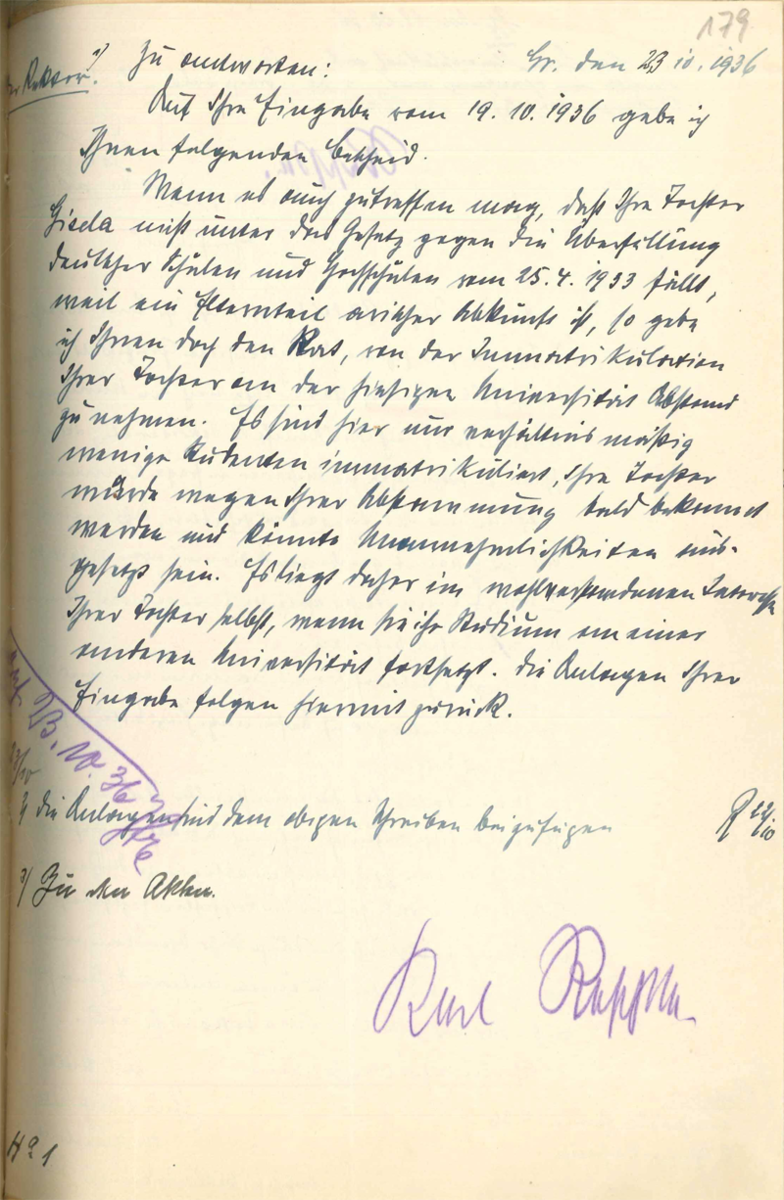 179
Der Rektor. 1) Zu antworten: Gr. den 23 10. 1936
Auf Ihre Eingabe vom 19. 10. 1936 gebe ich
Ihnen folgenden Bescheid.
Wenn es auch zutreffen mag, daß Ihre Tochter
Gisela nicht unter das Gesetz gegen die Überfüllung
deutscher Schulen und Hochschulen vom 25. 4. 1933 fällt,
weil ein Elternteil arischer Abkunft ist, so gebe
ich Ihnen doch den Rat, von der Immatrikulation
Ihrer Tochter an der hiesigen Universität Abstand
zu nehmen. Es sind hier nur verhältnismäßig
wenige Studenten immatrikuliert, Ihre Tochter
würde wegen Ihrer Abstammung bald bekannt
werden und könnte Unannehmlichkeiten aus-
gesetzt sein. Es liegt daher im wohlverstandenen Interesse
Ihrer Tochter selbst, wenn sie ihr Studium an einer
anderen Universität fortsetzt. Die Anlagen Ihrer
Eingabe folgen hiermit zurück.
23. 10. 36
23/10
2) die Anlagen sind dem obigen Schreiben beizufügen
22/10
3) Zu den Akten.
Karl